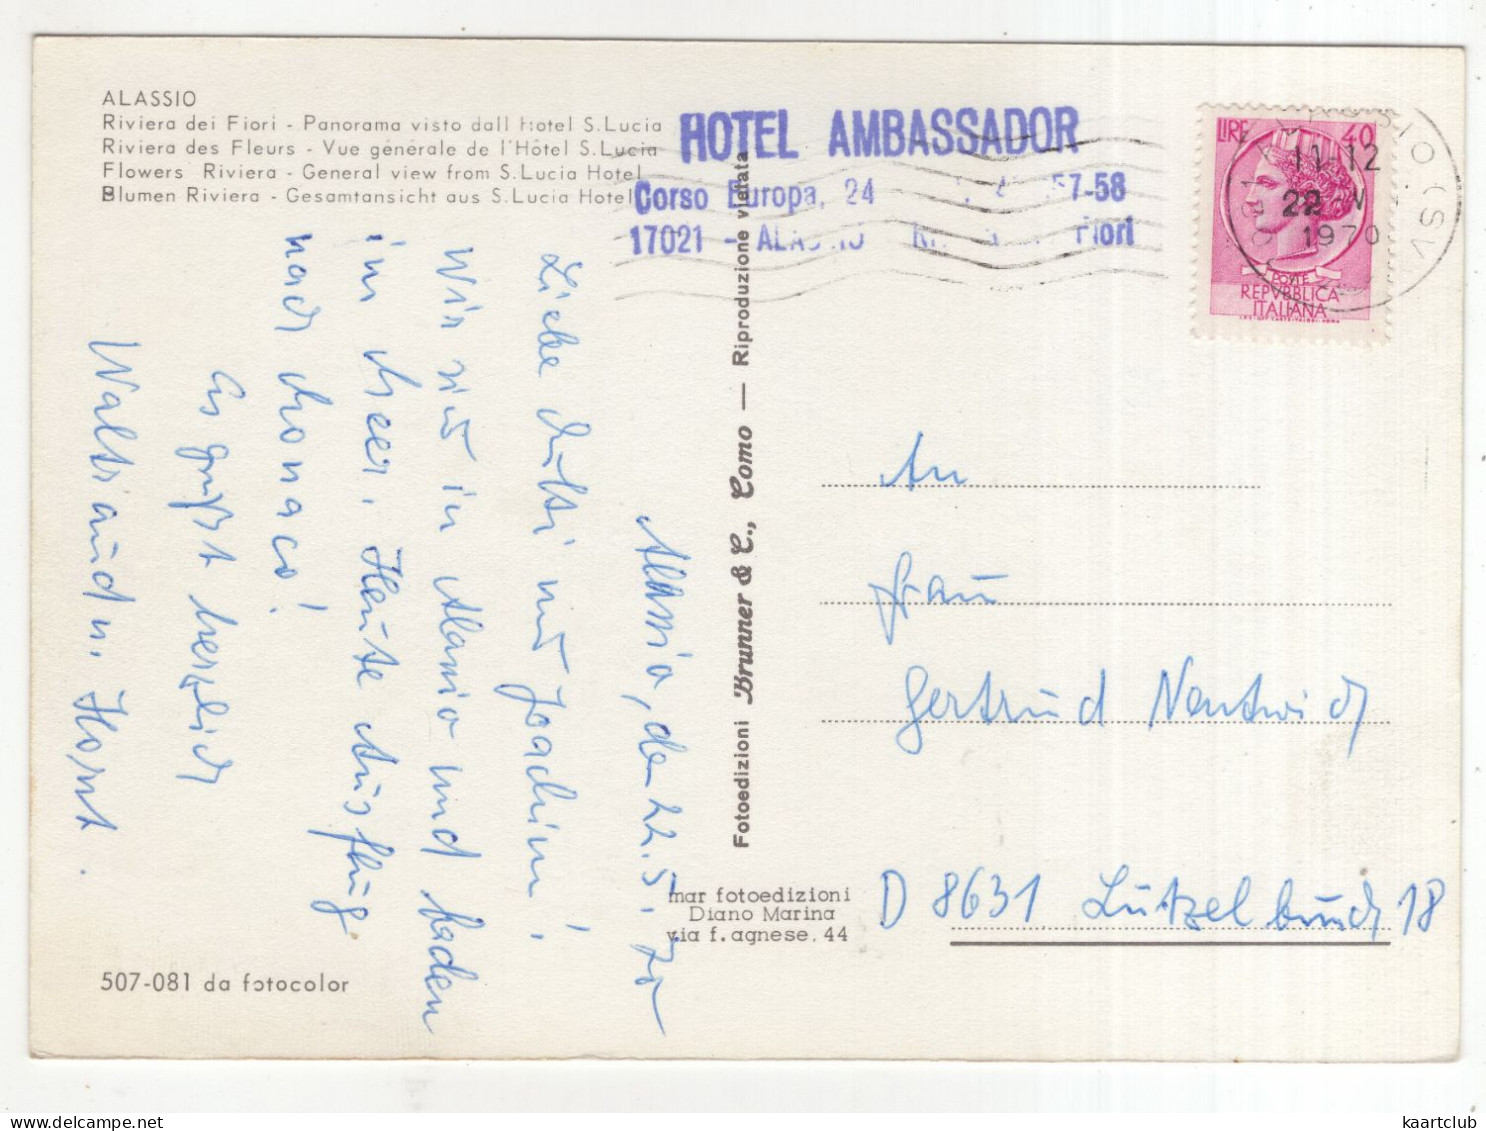 ALASSIO
Riviera dei Fiori - Panorama visto dall Hotel S.Lucia
Riviera des Fleurs - Vue générale de l'Hôtel S.Lucia
Flowers' Riviera - General view from S.Lucia Hotel
Blumen Riviera - Gesamtansicht aus S.Lucia Hotel
HOTEL AMBASSADOR
Corso Europa, 24 57-58
17021 - ALASSIO Fiori
LIRE 40
POSTE
REPVBBLICA
ITALIANA
11-12
22
1970
(SV)
Alassio, den 22.5.70
Liebe Mutti und Joachim!
Wir sind in Alassio und baden
im Meer. Heute Ausflug
nach Monaco!
Es grüßt herzlich
Waltraud u. Horst.
Fotoedizioni Brunner & C., Como — Riproduzione vietata
mar fotoedizioni
Diano Marina
via f. agnese, 44
An
Frau
Gertrud Nentwich
D 8631 Lützelbuch 18
507-081 da fotocolor
kaartenparadijs.com
kaartclub